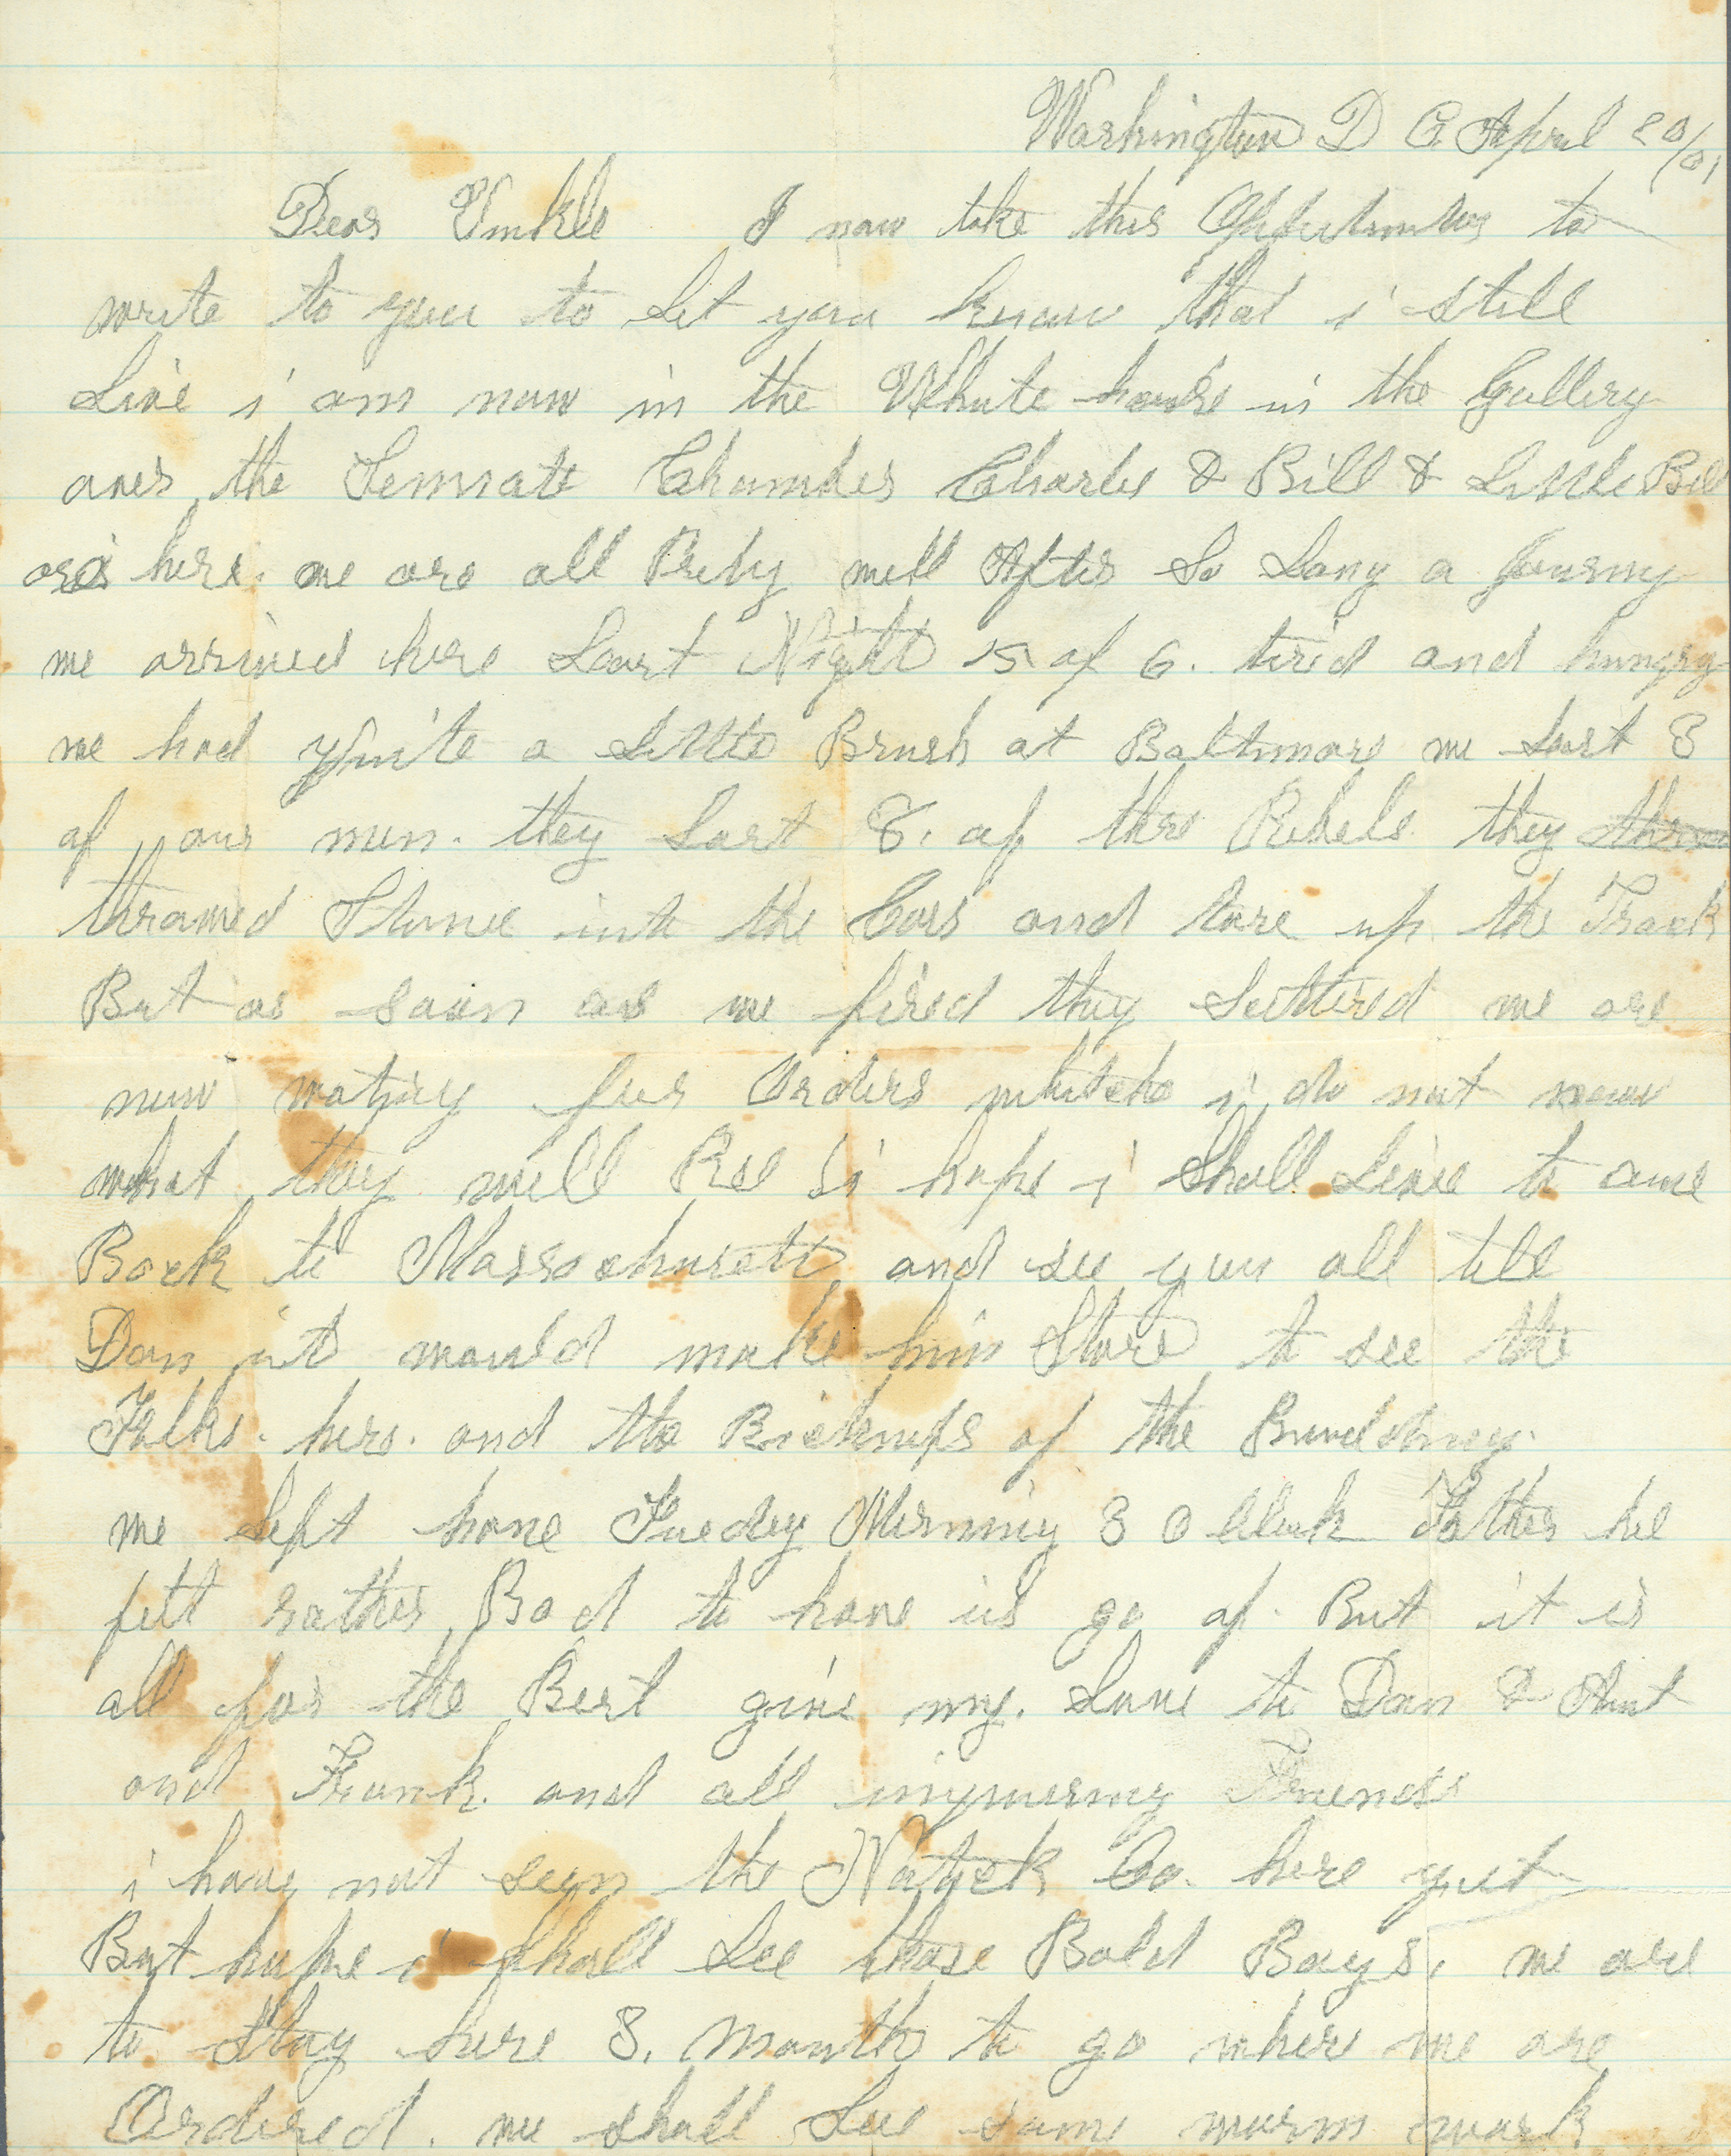 Washington D C April 20/61
Dear Unkle I now take this Oppertunitey to
write to you to Let you know that i still
Live i am now in the White house in the Gallery
over the Sennate Chamber Charles & Bill & Little Bill
are here. we are all Prety well After So Long a Journy
we arrived here Last Night 15 of 6. tired and hungry
we had quite a Little Brush at Baltimore we Lost 3
of our men. they Lost 8. of there Rebels they throw
throwed Stones into the Cars and tore up the Track
But as soon as we fired they Scattered we are
now wating for Orders which i do not now
what they will Bee i hope i Shall Live to come
Back to Massachusetts and see you all tell
Dan it would make him Stare to see the
Folks. here. and the of the Buildings.
we Left home Tuedey Morning 3 O Clock Father he
felt rather Bad to have us go of. But it is
all for the Best give my. Love to Dan & Aunt
and Frank. and all inquiring Friends
i have not seen the Natick Co. here yet
But hope i shall See those Bold Boys, we are
to Stay here 3. Months to go where we are
Ordered. we shall See some warm work